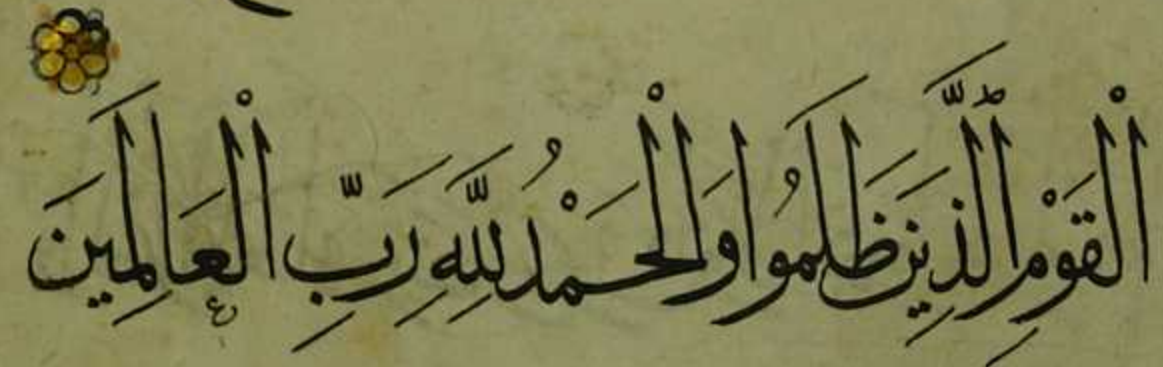 الْقَوْمِ الَّذِينَ ظَلَمُوا وَالْحَمْدُ لِلَّهِ رَبِّ الْعَالَمِينَ